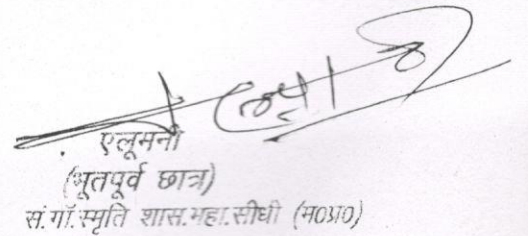 एलूमनी
(भूतपूर्व छात्र)
सं.गाँ.स्मृति शास.महा.सीधी (म0प्र0)